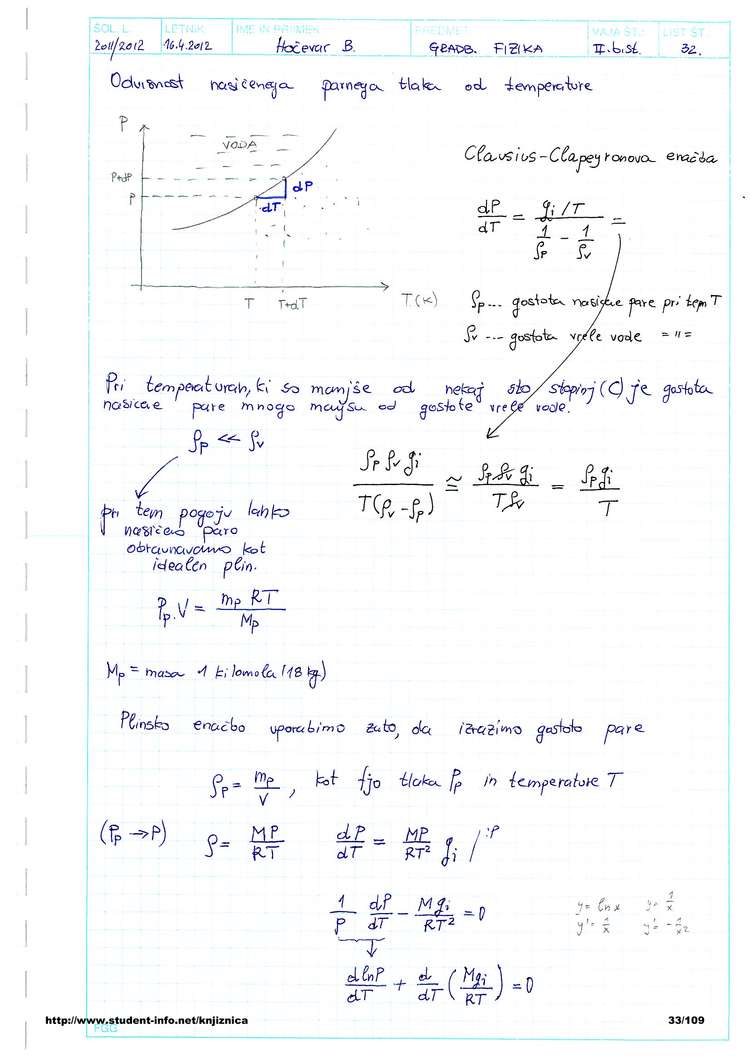 ŠOL. L. LETNIK IME IN PRIIMEK PREDMET VAJA ŠT.: LIST ŠT.
2011/2012 16.4.2012 Hočevar B. GRADB. FIZIKA II.b.st. 32.
Odvisnost nasičenega parnega tlaka od temperature
P
VODA
P+dP
P
dP
dT
T T+dT T(K)
Clausius-Clapeyronova enačba
dP/dT = (qi/T)/(1/ρp - 1/ρv) =
ρp ... gostota nasičae pare pri tem T
ρv ... gostota vrele vode = " =
Pri temperaturah, ki so manjše od nekaj sto stopinj (C) je gostota
nasičae pare mnogo manjša od gostote vrele vode.
ρp << ρv
ρp ρv qi / T(ρv - ρp) ≅ ρp ρv qi / Tρv = ρp qi / T
pri tem pogoju lahko
nasičeno paro
obravnavamo kot
idealen plin.
Pp.V = mp RT / Mp
Mp = masa 1 kilomola (18 kg)
Plinsko enačbo uporabimo zato, da izrazimo gostoto pare
ρp = mp/V, kot fjo tlaka Pp in temperature T
(Pp → P) ρ = MP/RT dP/dT = MP/RT² qi /:P
1/P dP/dT - Mqi/RT² = 0
y = ln x y = 1/x
y' = 1/x y' = -1/x²
dlnP/dT + d/dT (Mqi/RT) = 0
http://www.student-info.net/knjiznica 33/109
FGG